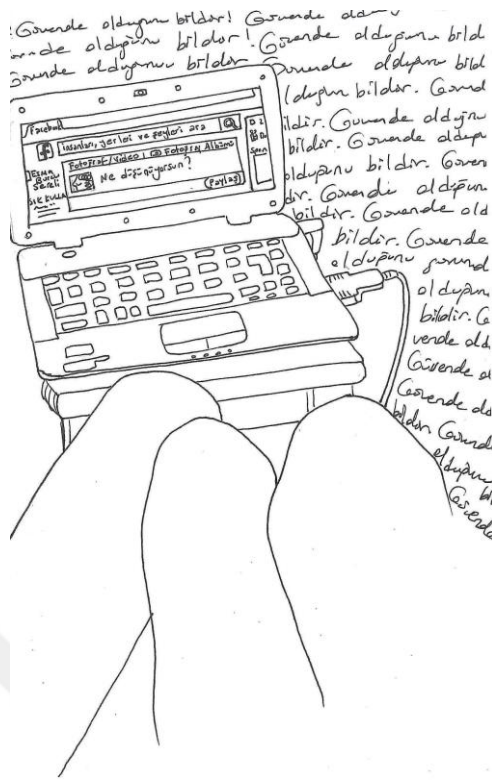 Güvende olduğunu bildir! Güvende oldu
olduğunu bildir! Güvende olduğunu bild
Güvende olduğunu bildir Güvende olduğunu bild
olduğunu bildir. Güvend
bildir. Güvende olduğunu
bildir. Güvende olduğu
olduğunu bildir. Güven
dir. Güvende olduğunu
bildir. Güvende old
bildir. Güvende
olduğunu
olduğunu
bildir. G
vende old
Güvende o
Güvende old
bildir. Güvend
olduğunu
bil
Güvende
Facebook
f İnsanları, yerleri ve şeyleri ara
Fotoğraf/Video Fotoğraf Albümü
Ne düşünüyorsun?
Paylaş
Esra
Burcu
Sereli
SIK KULLA